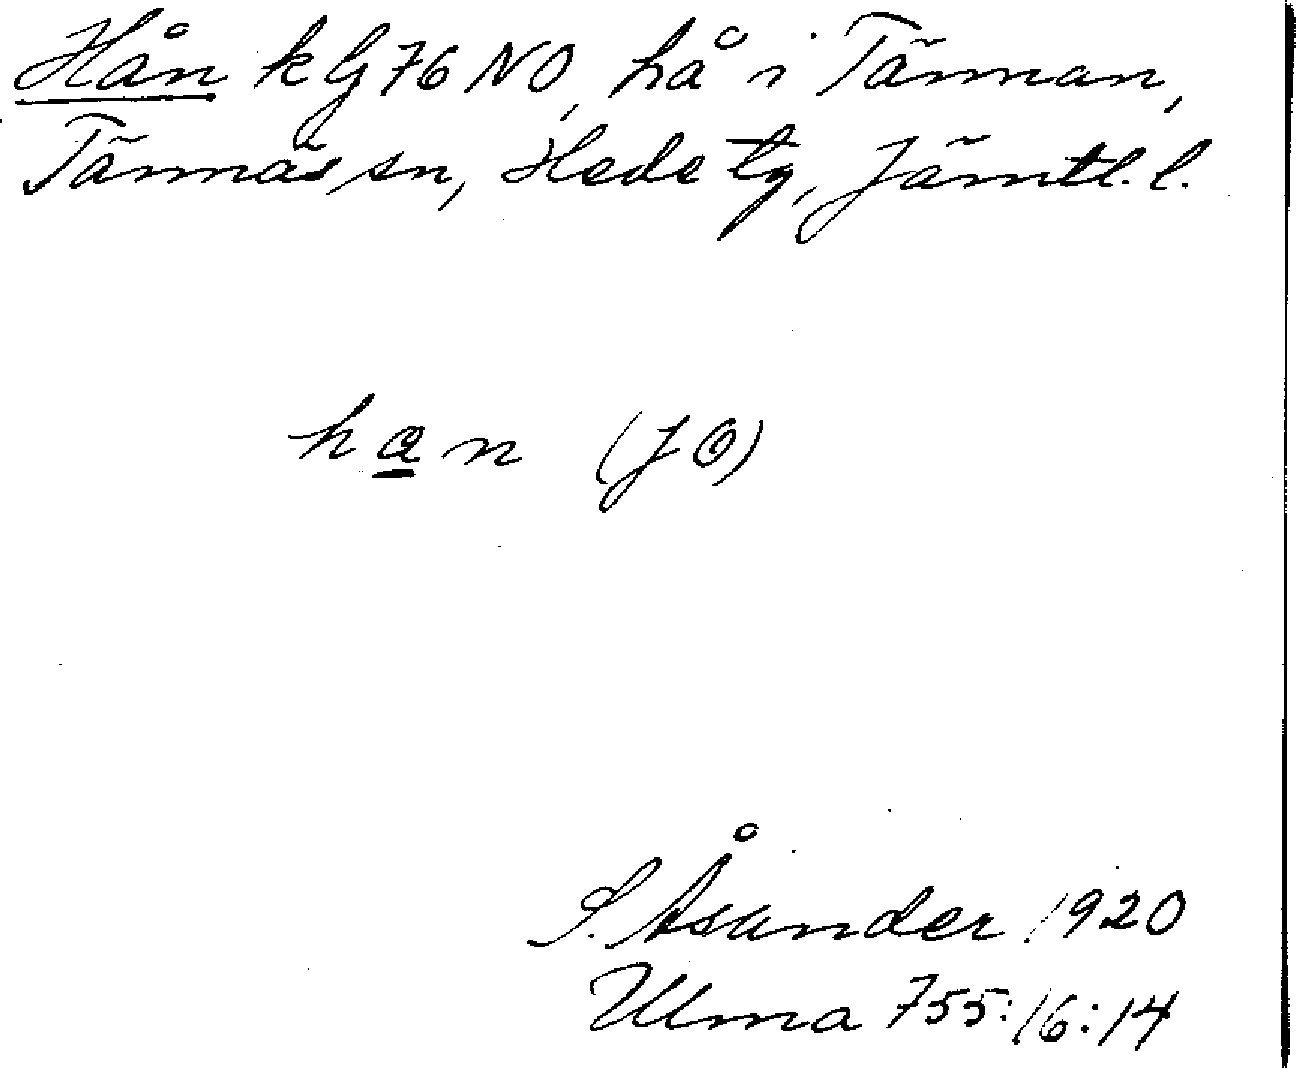 Hån k G 76 NO, hå i Tännan,
Tännäs sn, Hede tg, Jämtl. l.
han (JO)
S. Åsander 1920
Ulma 755:16:14